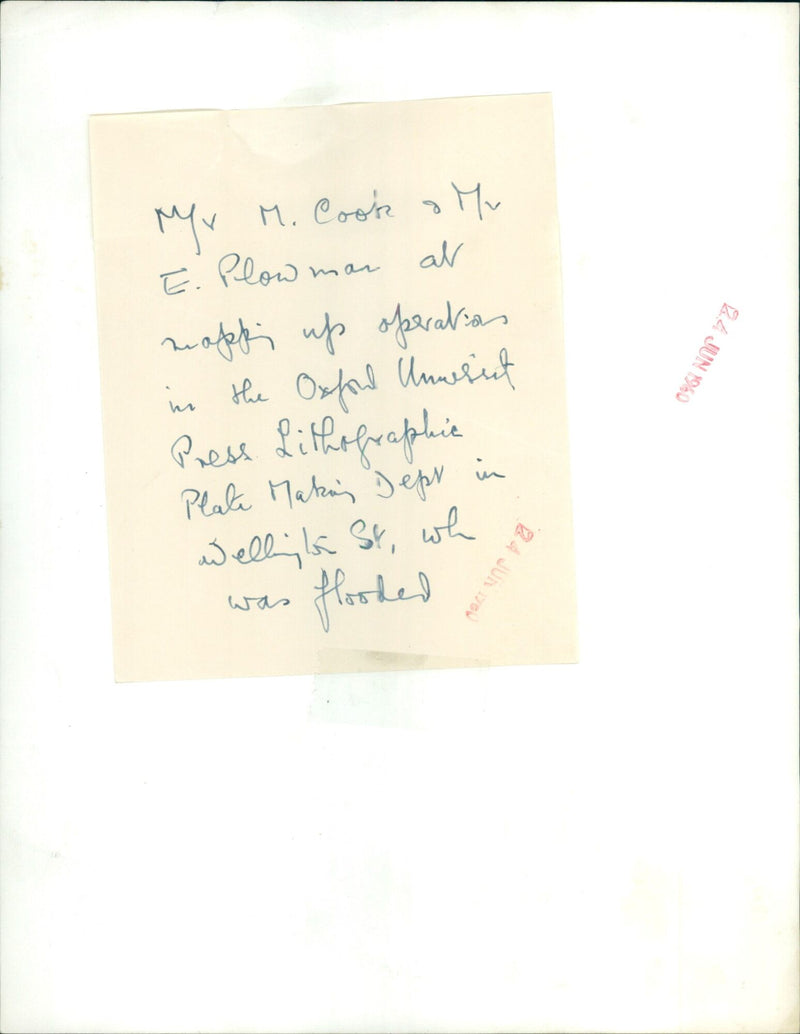 Mr M. Cook & Mr
E. Plowman at
mopping up operations
in the Oxford University
Press Lithographic
Plate Making Dept in
Wellington St, wh
was flooded
24 JUN 1960
24 JUN 1960